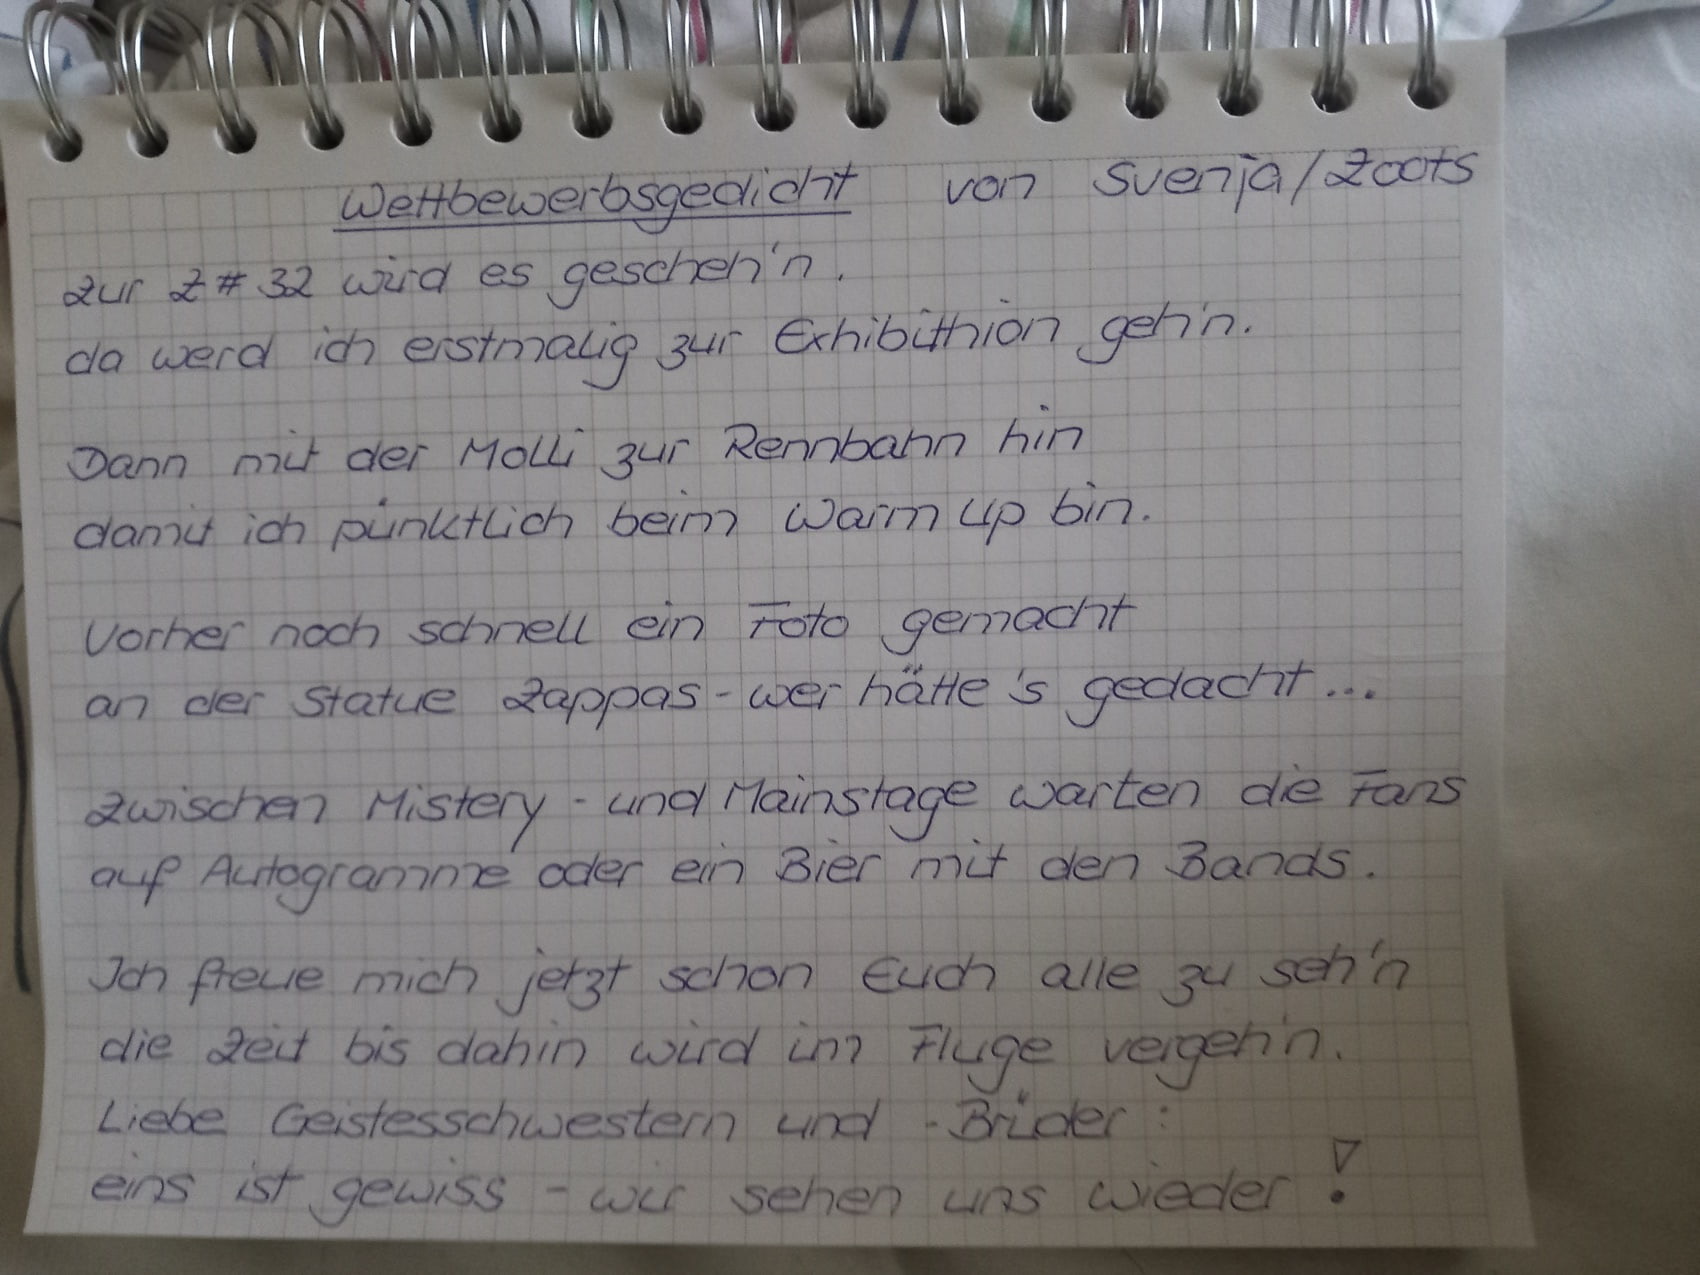 Wettbewerbsgedicht von Svenja/Zoots
zur Z#32 wird es gescheh'n.
da werd ich erstmalig zur Exhibithion geh'n.
Dann mit der Molli zur Rennbahn hin
damit ich pünktlich beim Warm up bin.
Vorher noch schnell ein Foto gemacht
an der Statue Zappas - wer hätte's gedacht...
Zwischen Mistery - und Mainstage warten die Fans
auf Autogramme oder ein Bier mit den Bands.
Ich freue mich jetzt schon Euch alle zu seh'n
die Zeit bis dahin wird im Fluge vergeh'n.
Liebe Geistesschwestern und -Brüder:
eins ist gewiss - wir sehen uns wieder!